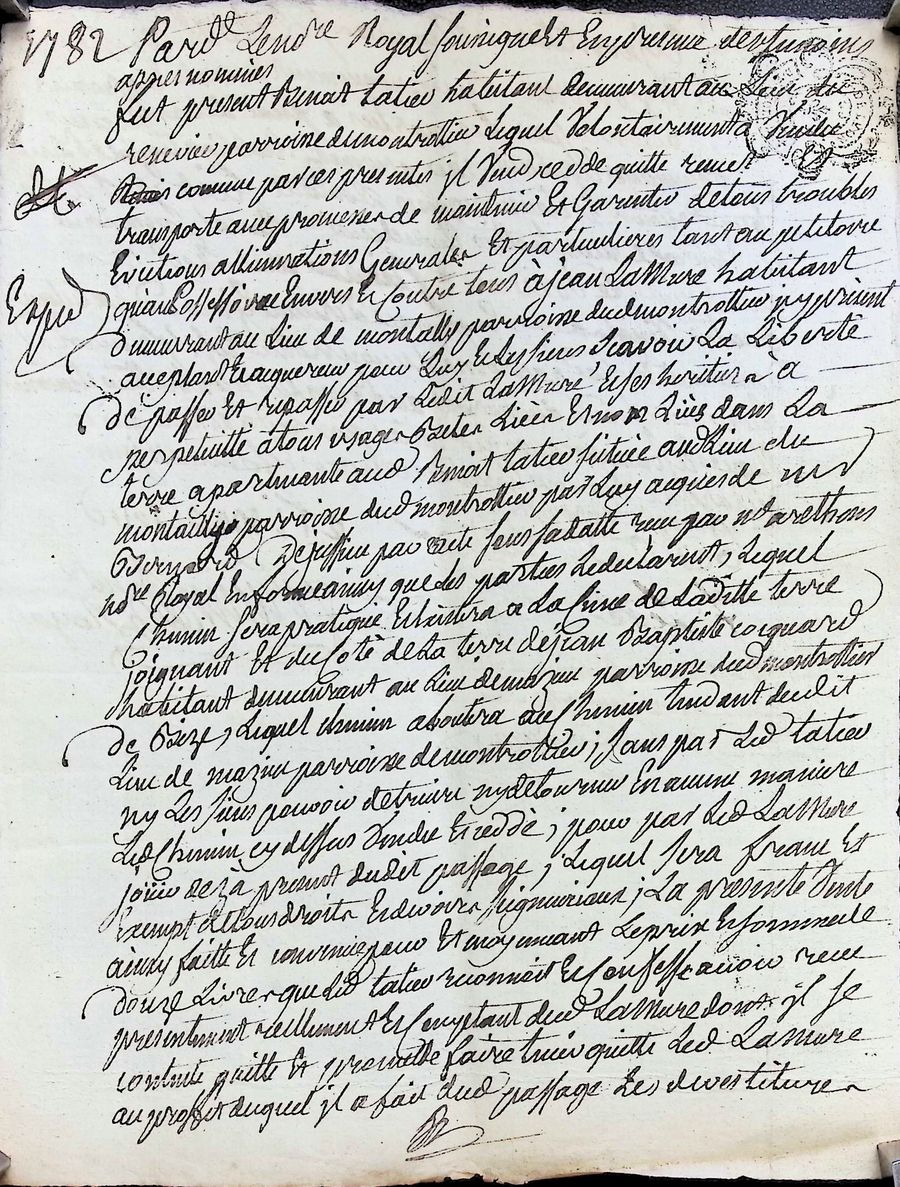 1782 Pard.t Le no.re Royal soussigné Et En presence des temoins
appres nommés
fut present Benoit tatieu habitant demeurant au Lieu du
parroisse de montrottier Lequel Volontairement a Vendu
comme par ces presentes jl Vend cedde quitte remet Et
transporte avec promesse de maintenir Et Garentir de tous troubles
Evictions allienations Generales Et particulieres tant au petitoire
qu'au Possessoire Envers Et Contre tous à jean La Mure habitant
Exped
demeurant au Lieu de montally parroisse dud montrottier jcy present
acceptant Et acquereur pour Luy Et Les siens scavoir La Liberté
De passer Et repasser par Ledit La Mure Et ses heritiers a
perpetuitté a tous usages Betes Liées Et non Liées dans La
terre apartenante aud Benoit tatieu sittuée aud Lieu du
parroisse dud montrottier par Luy acquise de mr
Bernard Dejussieu par acte sous sa datte receu par me arethons
no.re Royal Enforme ainsy que des parties Le declarent, Lequel
Chemin sera pratiqué Et Laissera a La Cime de Laditte terre
joignant Et du Coté de La terre de jean Baptiste coquard
habitant demeurant au Lieu de mazieu parroisse dud montrottier
De Bize, Lequel chemin aboutira au Chemin tendant dudit
Lieu de mazieu parroisse de montrottier; sans par Led tatieu
ny Les siens pouvoir detruire ny detourner En aucune maniere
Led Chemin cy dessus Vendu Et ceddé; pour par Led La Mure
joüir de za present dudit passage; Lequel sera franc Et
Exempt de tous droits Et devoirs seigneuriaux; La presente Vente
ainsy faitte Et convenue pour Et moyennant Le prix Et somme de
douze Livres que Led tatieu reconnoit Et Confesse avoir receu
presentement reellement Et Comptant dud La Mure dont jl se
contente quitte Et promet de faire tenir quitte Led La Mure
au proffit duquel jl a fait dud passage Les devestitures